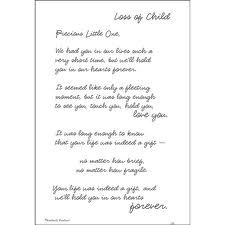 Loss of Child
Precious Little One,
We had you in our lives such a
very short time, but we'll hold
you in our hearts forever.
It seemed like only a fleeting
moment, but it was long enough
to see you, touch you, hold you,
love you.
It was long enough to know
that your life was indeed a gift —
no matter how brief,
no matter how fragile.
Your life was indeed a gift, and
we'll hold you in our hearts
forever.